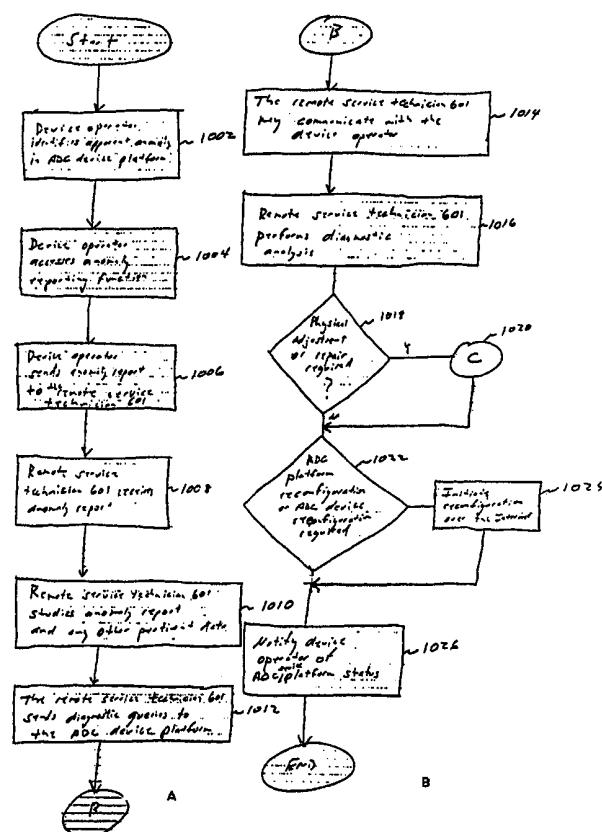 Start
Device operator
identifies apparent anomaly
in ADC device platform
1002
Device operator
accesses anomaly
reporting function
1004
Device operator
sends anomaly report
to the remote service
technician 601
1006
Remote service
technician 601 receives
anomaly report
1008
Remote service technician 601
studies anomaly report
and any other pertinent data
1010
The remote service technician 601
sends diagnostic queries to
the ADC device platform
1012
B
A
B
The remote service technician 601
may communicate with the
device operator
1014
Remote service technician 601
performs diagnostic
analysis
1016
Physical
adjustment
or repair
required
?
1018
Y
N
C
1020
ADC
platform
reconfiguration
or ADC device
reconfiguration
required
1022
Initiate
reconfiguration
over the Internet
1024
Notify device
operator of
ADC platform status
1026
END
B